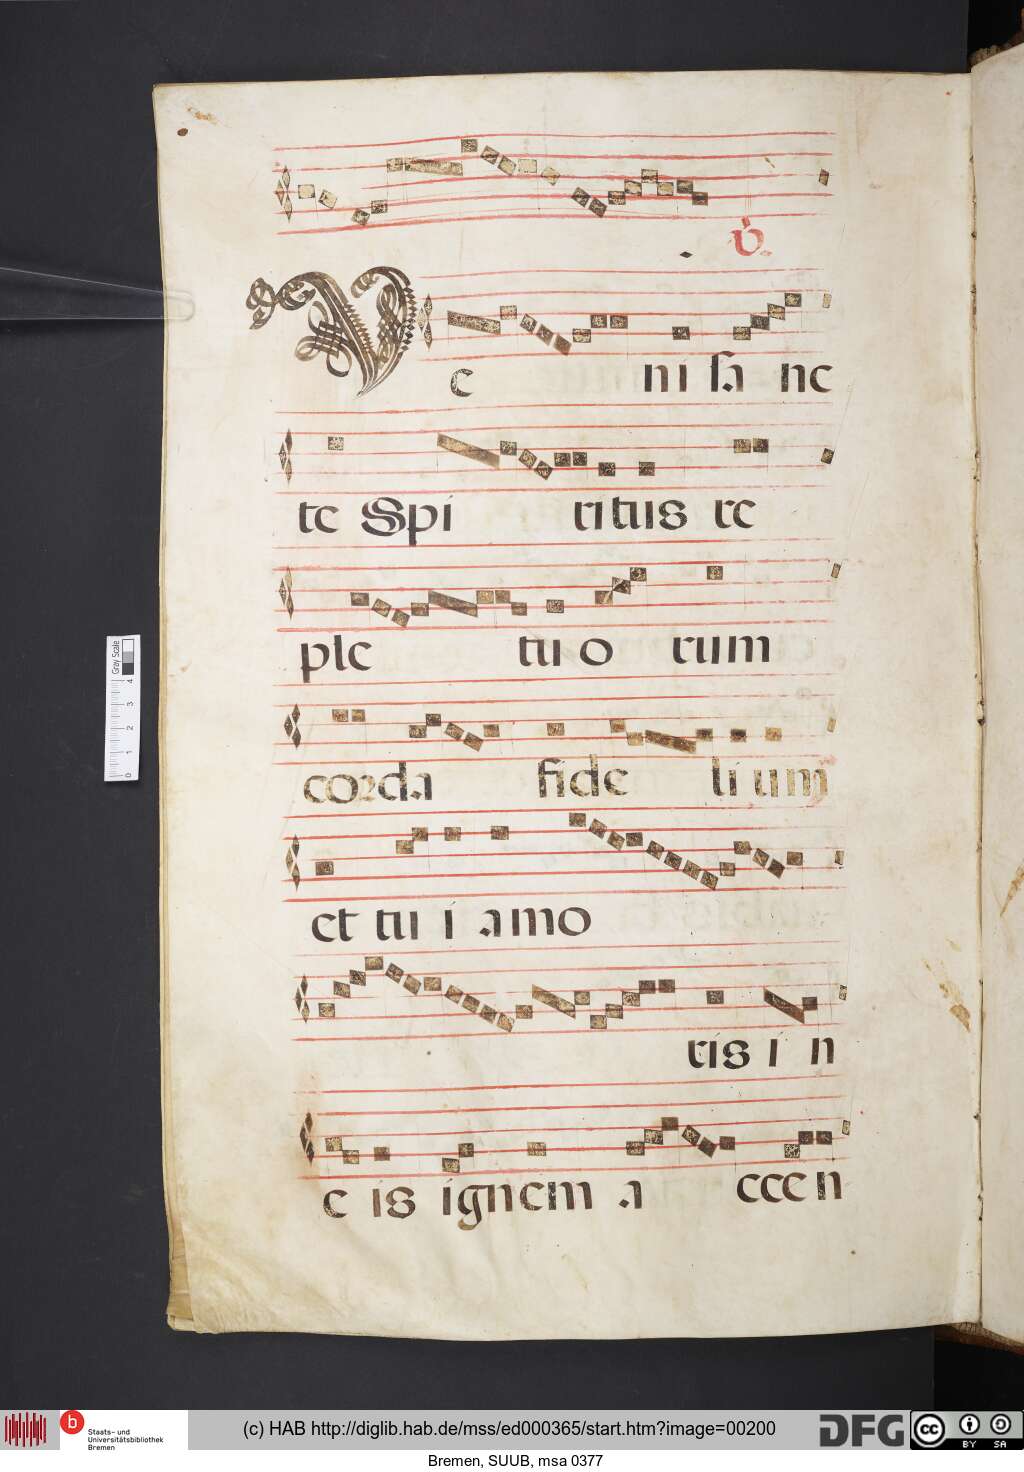 V.
Ve ni sa nc
te Spi ritus re
ple tu o rum
corda fide li um
et tu i amo
ris i n
e is ignem a ccen
Gray Scale
0 1 2 3 4
b Staats- und
Universitätsbibliothek
Bremen
(c) HAB http://diglib.hab.de/mss/ed000365/start.htm?image=00200
DFG
cc BY SA
Bremen, SUUB, msa 0377